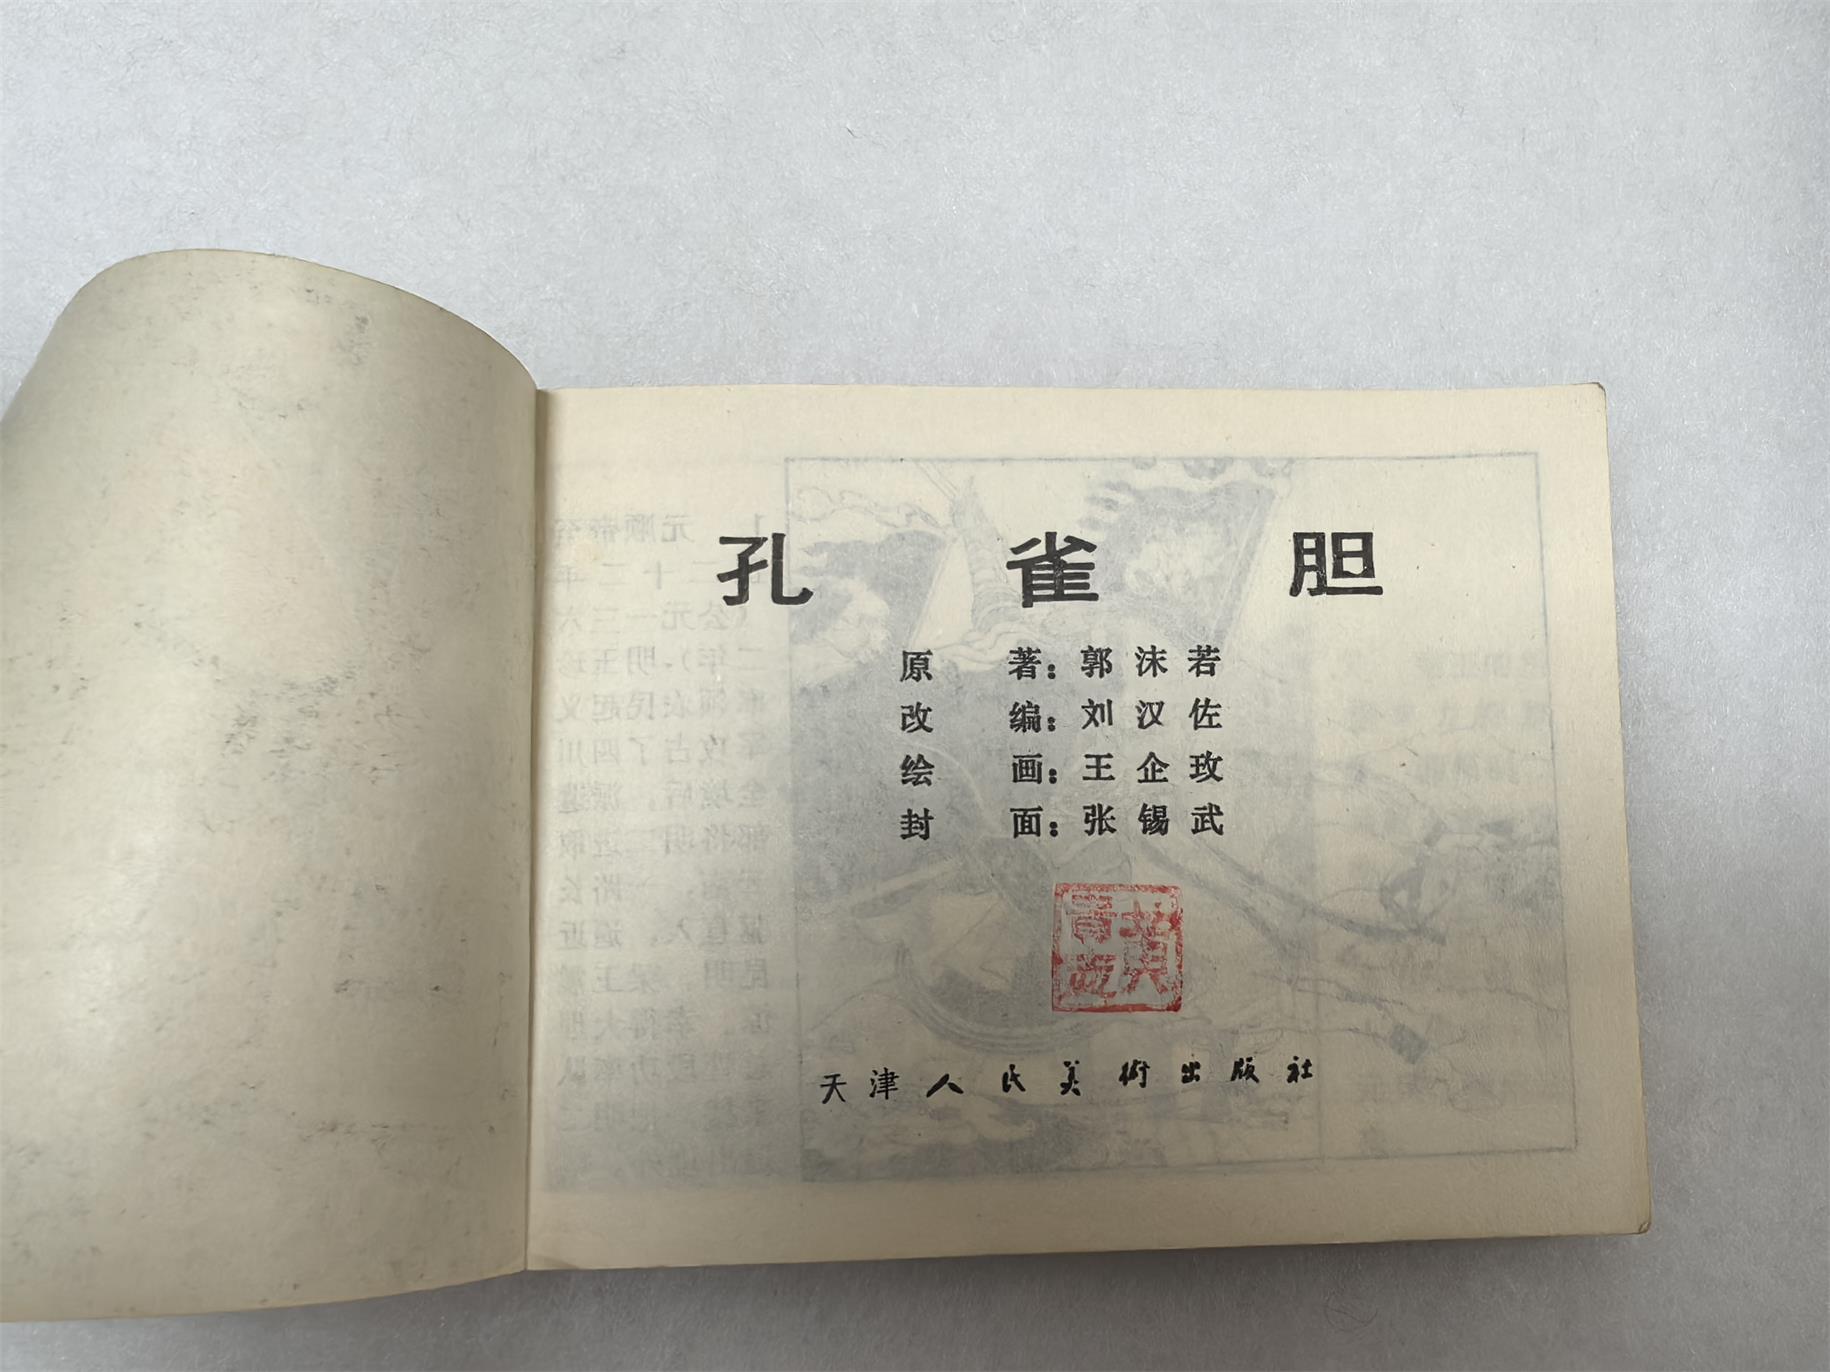 孔雀胆
原著：郭沫若
改编：刘汉佐
绘画：王企玫
封面：张锡武
天津人民美術出版社